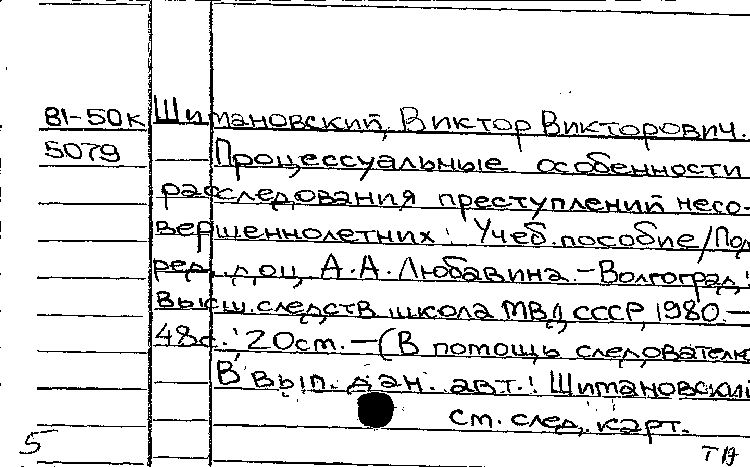 81-50к Шимановский, Виктор Викторович.
5079 Процессуальные особенности
расследования преступлений несо-
вершеннолетних: Учеб. пособие/Под
ред. доц. А.А. Любавина.-Волгоград:
Высш. следств. школа МВД СССР, 1980.-
48с.; 20см.-(В помощь следователю
В вып. дан. авт.: Шимановский
см. след. карт.
5